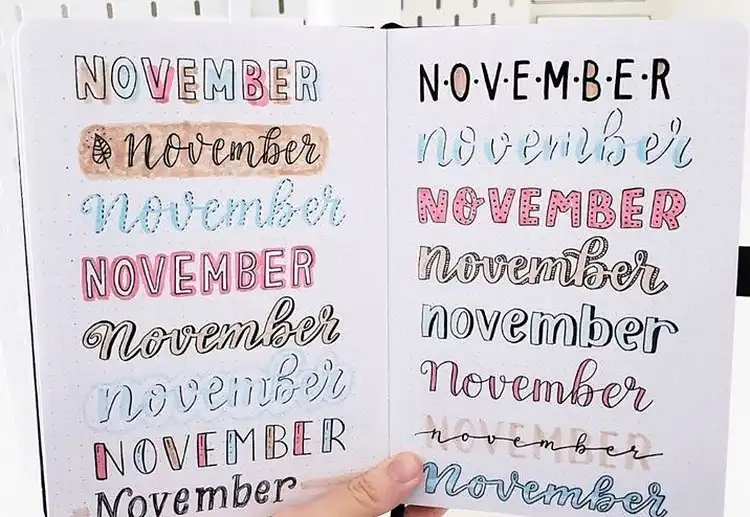 NOVEMBER
November
November
NOVEMBER
November
november
NOVEMBER
November
N·O·V·E·M·B·E·R
november
NOVEMBER
november
november
November
NOVEMBER
november
November